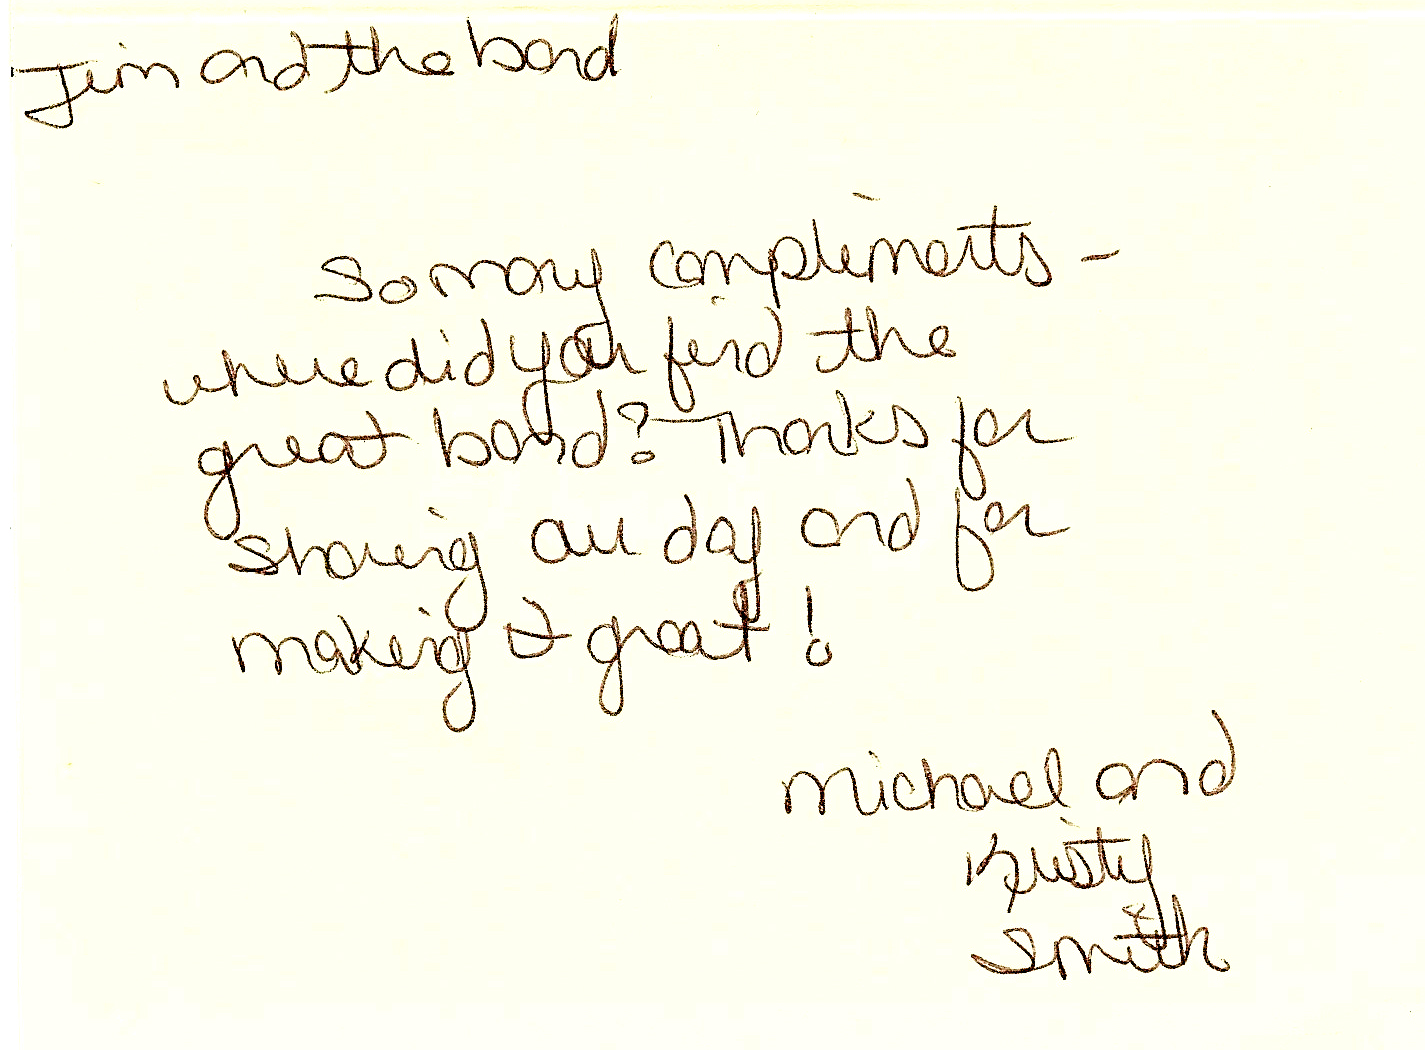 Jim and the band
So many compliments -
where did you find the
great band? Thanks for
sharing our day and for
making it great!
Michael and
Kristy
Smith